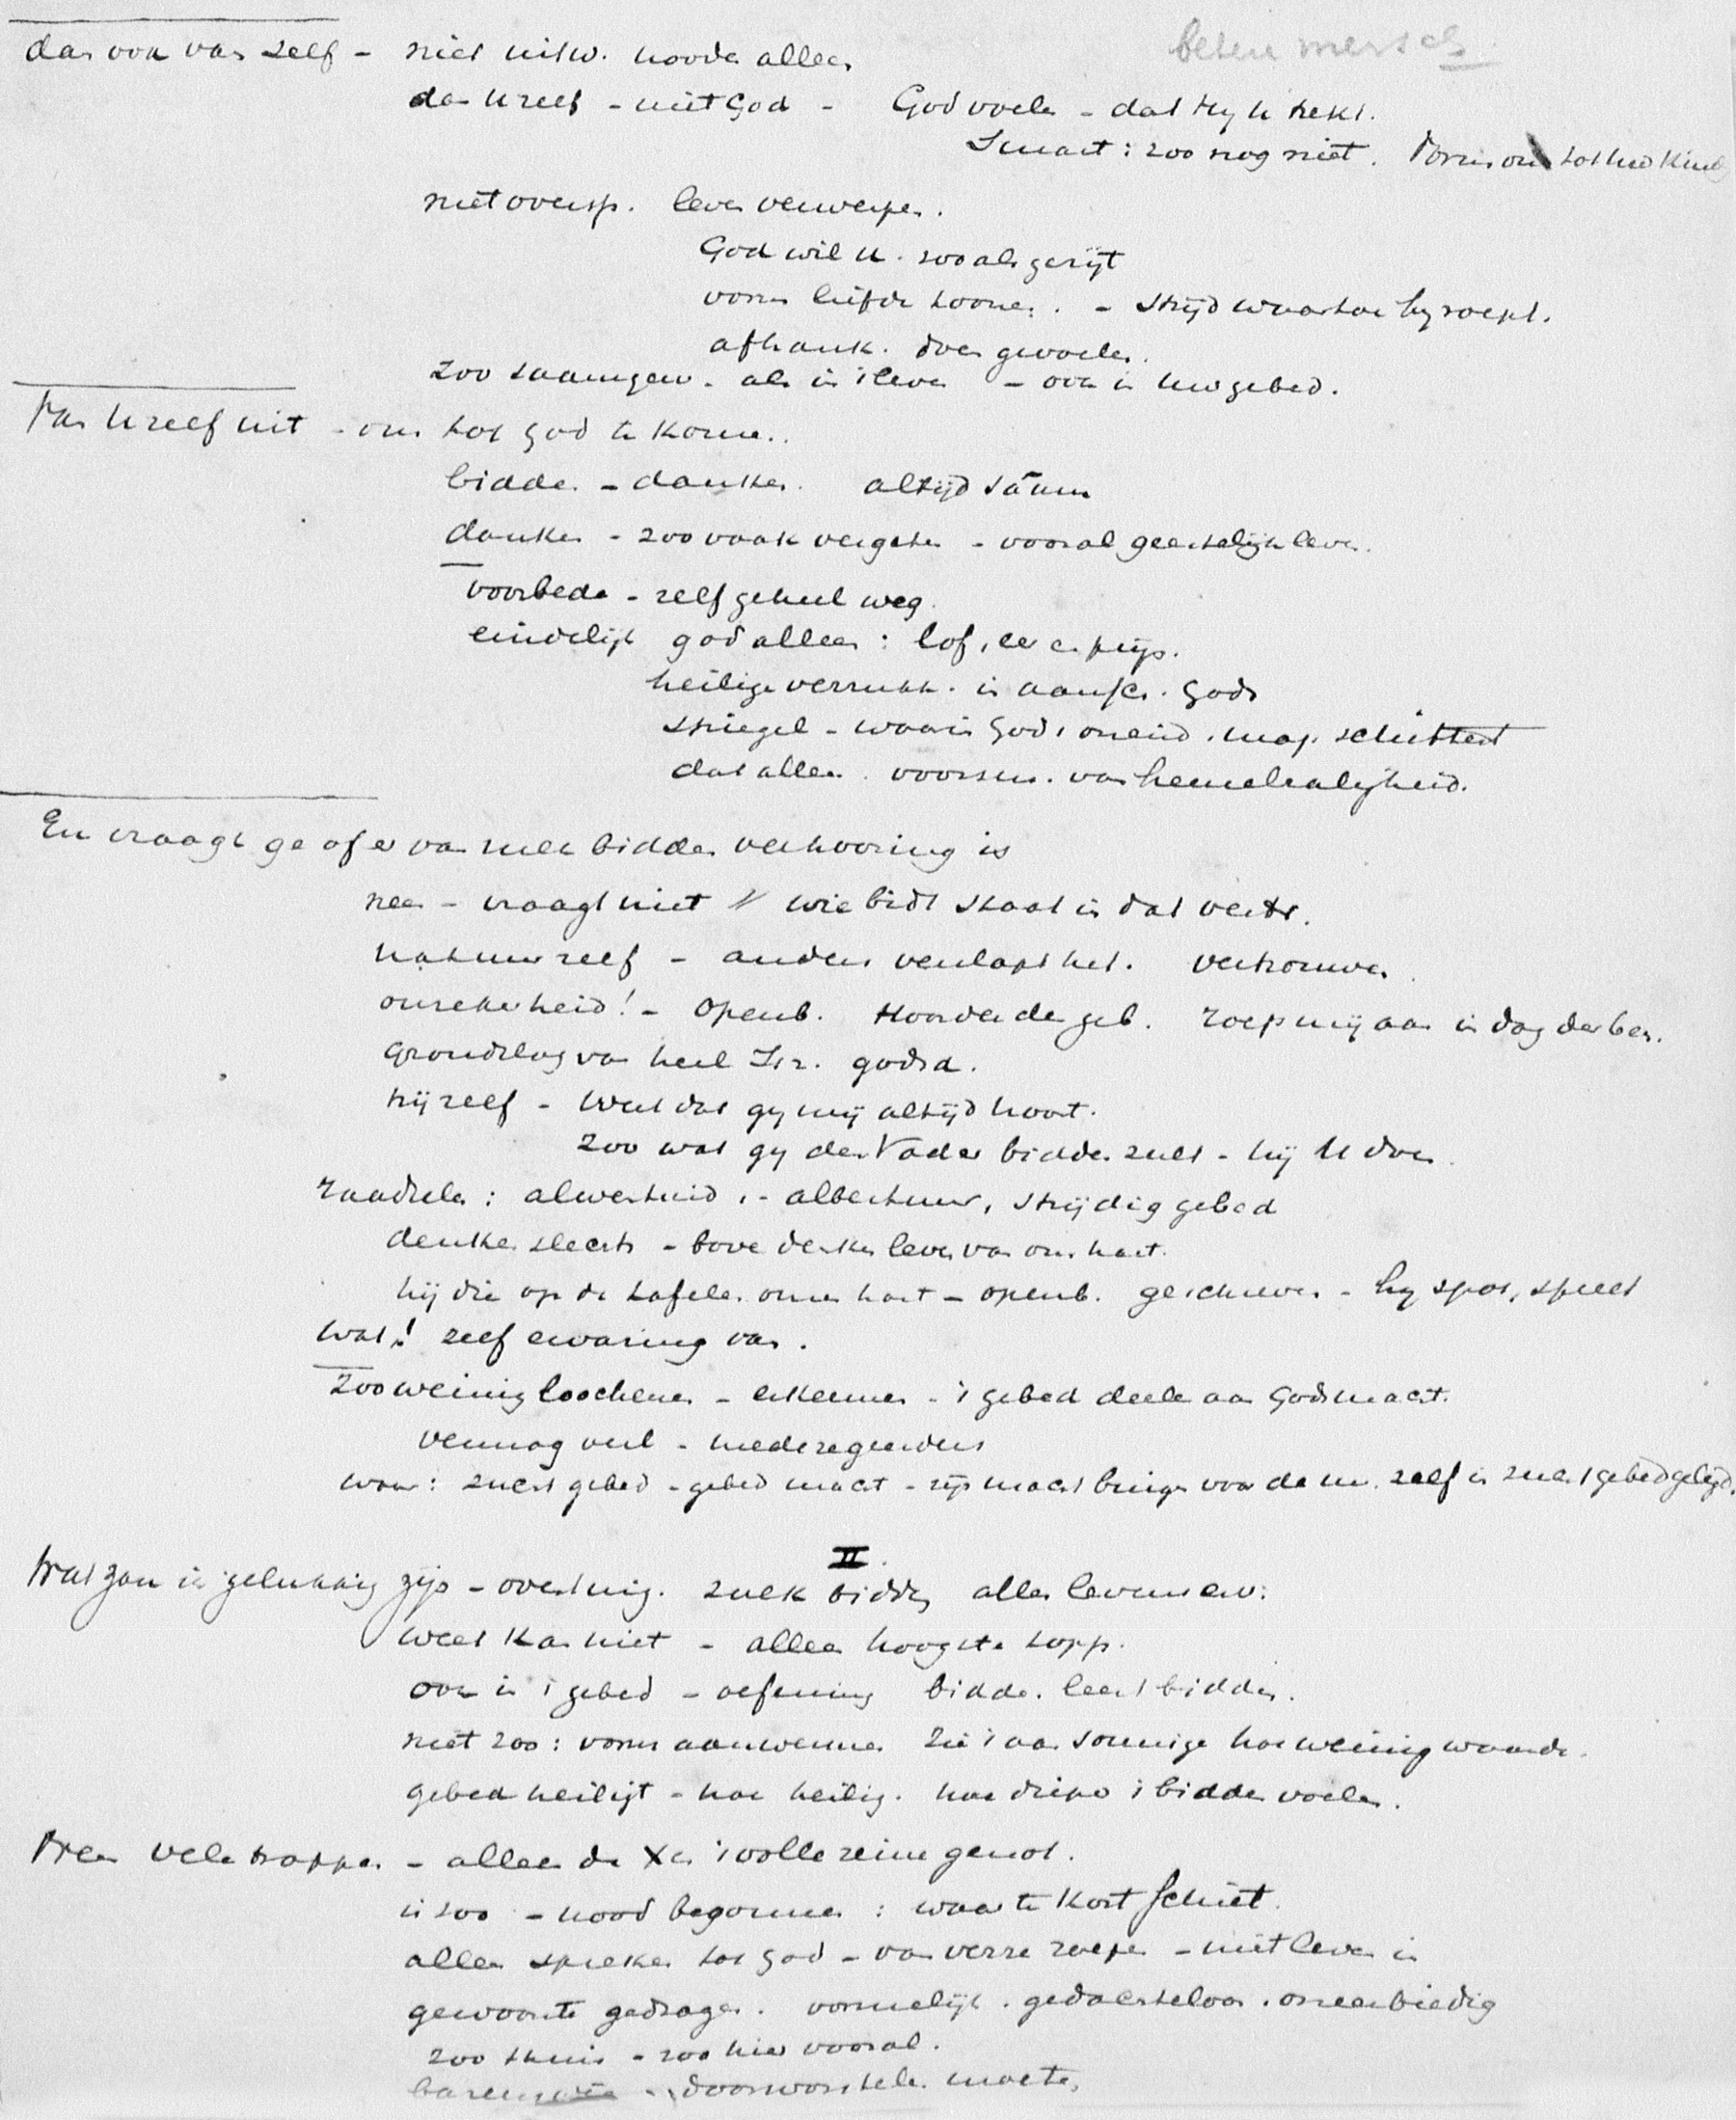 betere mensch
dan ook van zelf - niet uitw. noode alleen
dan U zelf - uit God - God voelen - dat Hy U trekt.
Smart: zoo nog niet. Vorm ons tot Uw Kind
niet oversp. leven verwerpen.
God wil U. zooals ge zijt
vorm liefde toonen. - strijd waartoe hy roept.
afhank. doen gevoelen.
zoo saamgew. als in 't leven - ook in uw gebed.
Van U zelf uit - om tot God te komen..
bidden - danken. altijd sâam
danken - zoo vaak vergeten - vooral geestelijk leven.
voorbede - zelf geheel weg.
eindelijk god alleen: lof, eer en prijs.
heilige verrukk. in aansch. Gods
spiegel - waarin Gods oneind. maj. schittert
dat alleen. voorsm. van hemelzaligheid.
En vraagt ge of er van zulk bidden verhooring is
neen - vraagt niet // wie bidt staat in dat vertr.
natuur zelf - anders verlaagt het. vertrouwen.
onzekerheid! - Openb. Hoorder de geb. roep mij aan in dag der ben.
Grondslag van heel Isr. godsd.
hij zelf - Weet dat gy mij altijd hoort.
zoo wat gy den Vader bidden zult - hij U doen.
raadselen: alwetheid, - albestuur, strijdig gebed
denken slechts - boven denken leven van ons hart.
hij die op de tafelen onzer hart - openb. geschreven - hy spot, speelt
Wat! zelf ervaring van.
Zoo weinig loochenen - erkennen - 't gebed deele aan Gods macht.
vermag veel - mederegeerders
waar: zulk gebed - gebed macht - zijn macht brengen voor de m. zelf in zulk 't gebed gelegd.
II.
Wat zou ik gelukkig zijn - overtuig. zulk bidden allen levensew:
weet kan niet - alleen hoogste topp.
ook in 't gebed - oefening bidden leert bidden.
niet zoo: vorm aanwennen zie 't aan sommige hoe weinig waarde.
gebed heiligt - hoe heilig. hoe dieper 't bidden voelen.
Neen vele trappen - alleen de Xen 't volle reine genot.
is zoo - nood begonnen: waar te kort schiet.
alleen spreken tot God - van verre roepen - niet leven in
gewoonte gedragen. vormelijk. gedachteloos. oneerbiedig
zoo thuis - zoo hier vooral.
doorworstelen moeten,